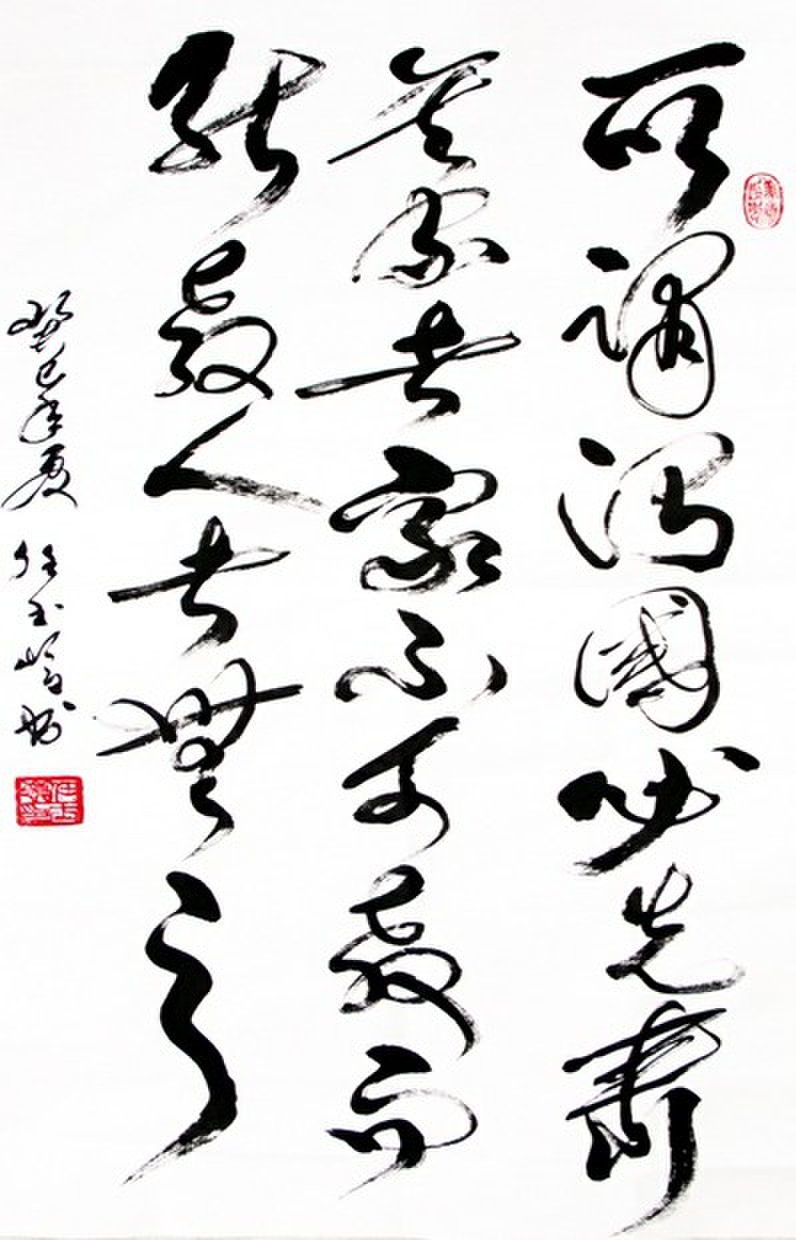 所謂治國必先齊
其家者家不可教而
能教人者無之
癸巳年夏 任玉岭书